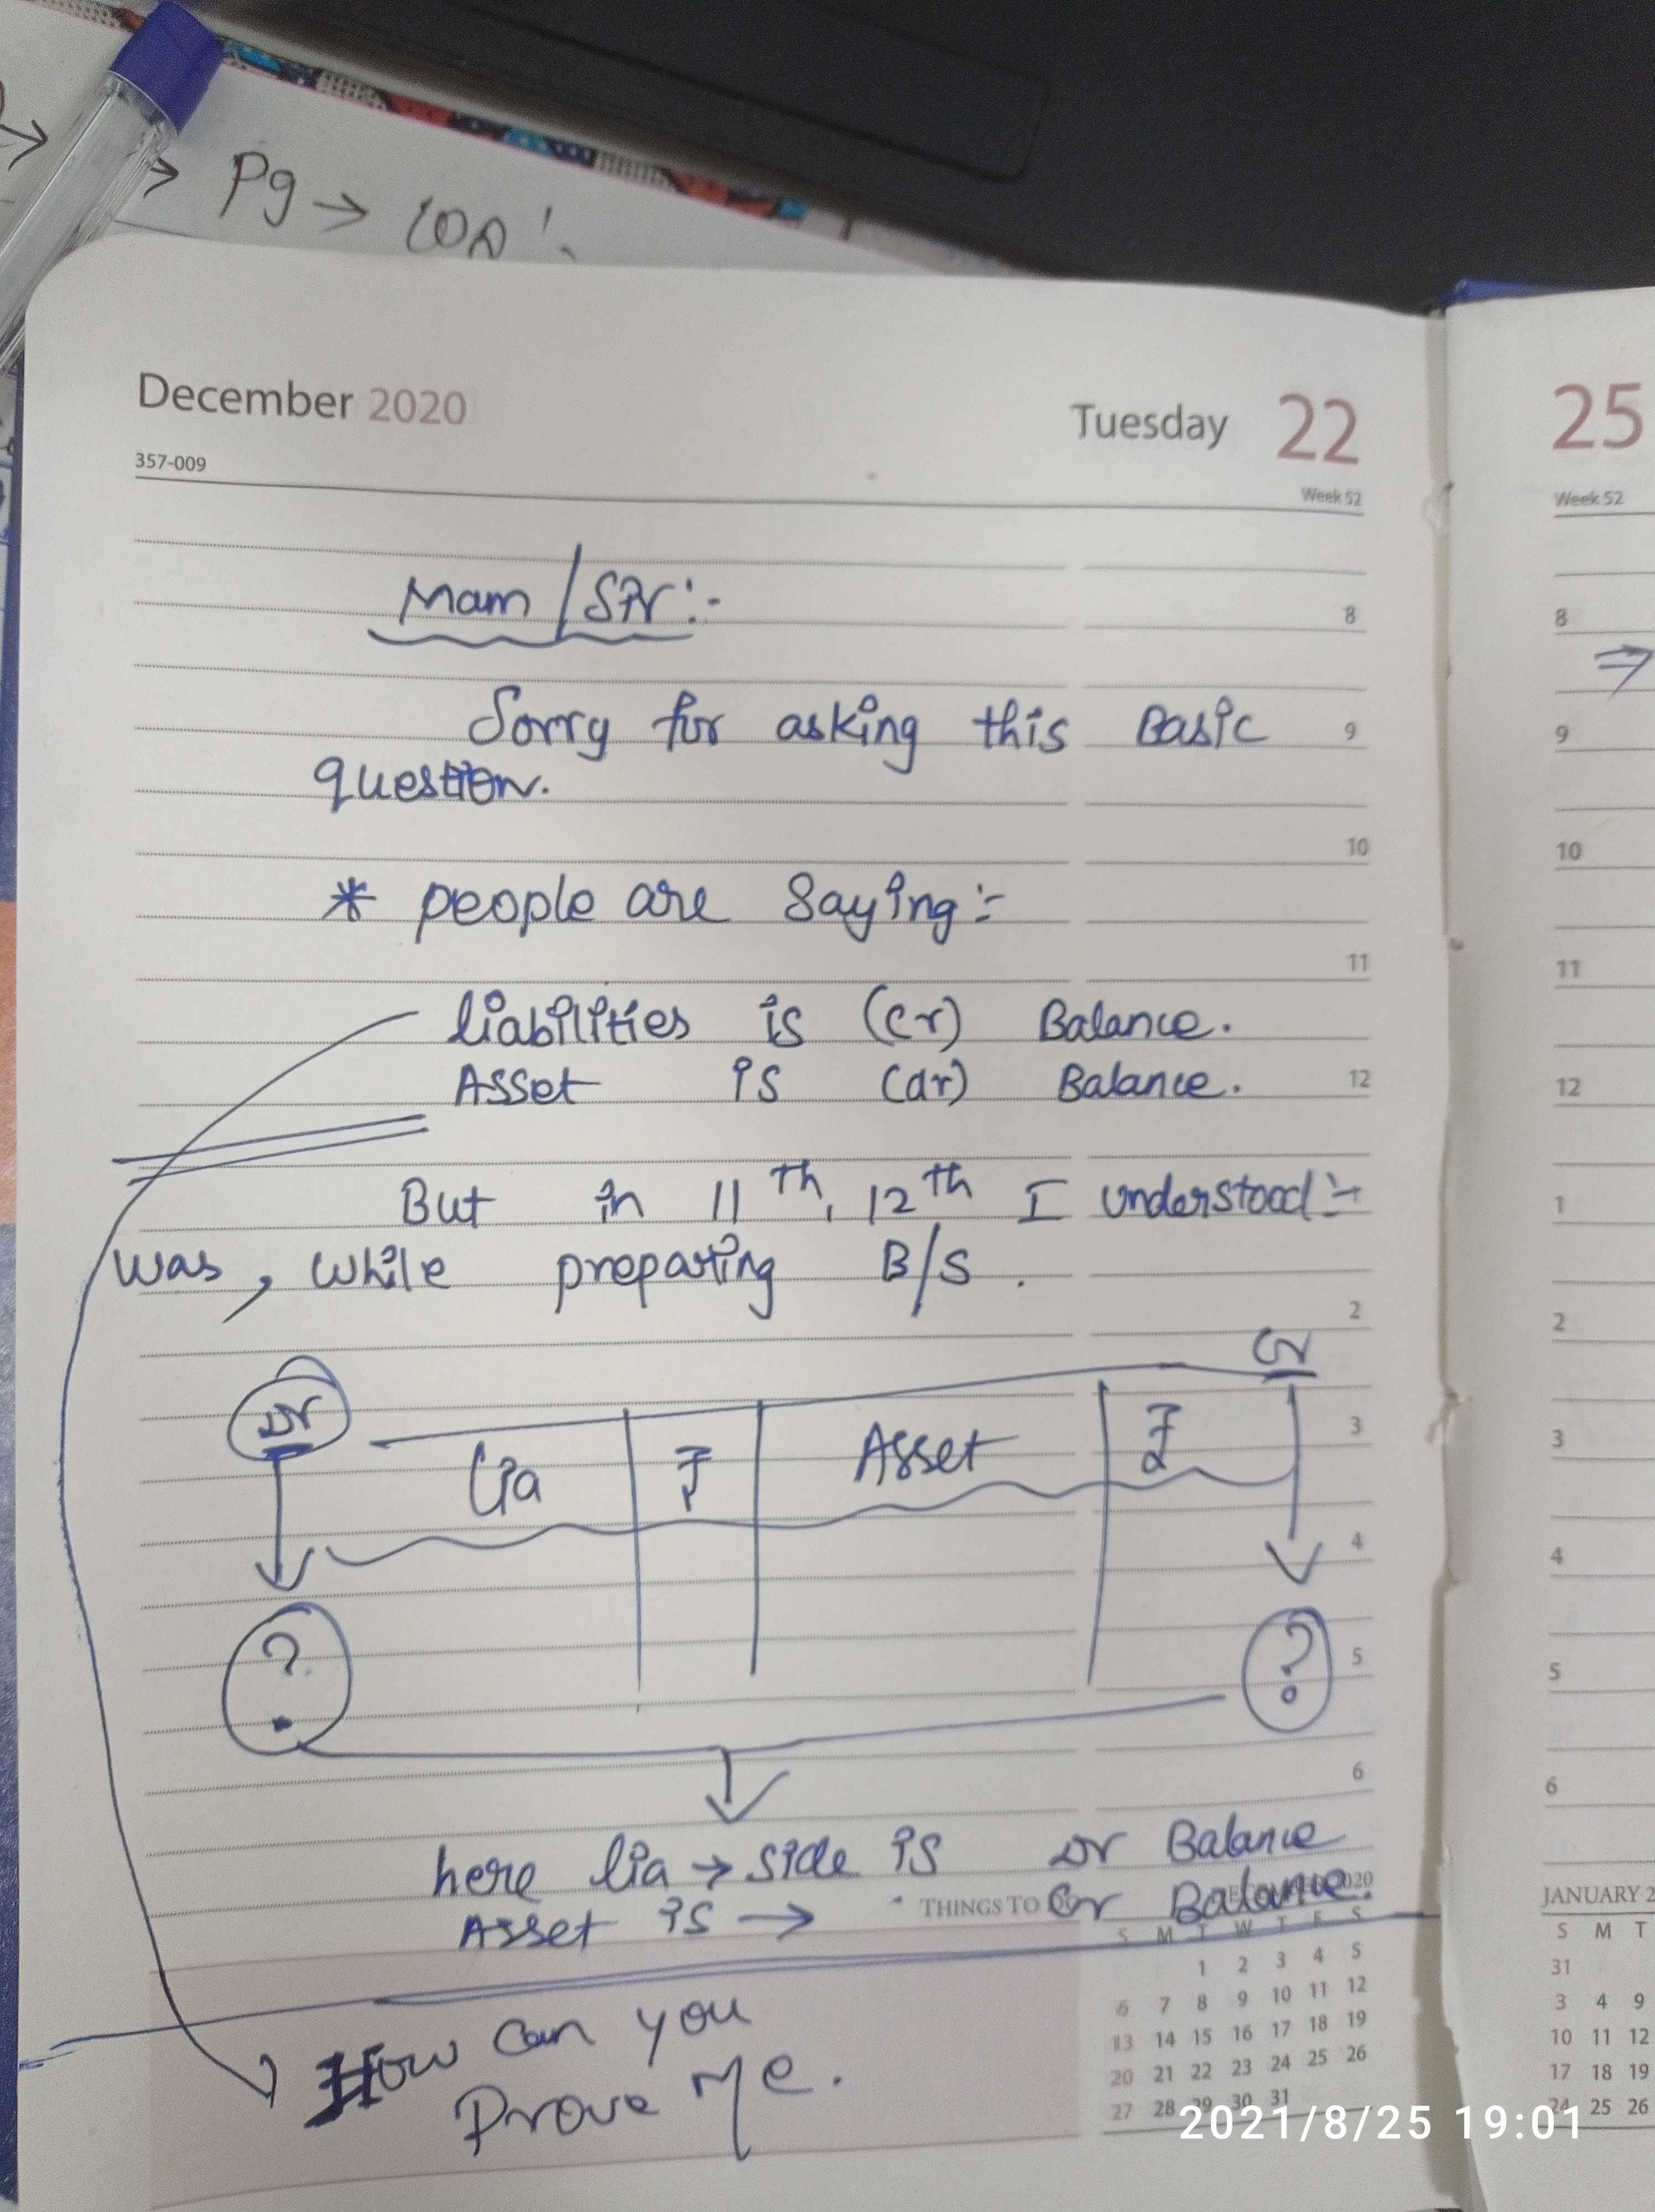 Pg → 
December 2020
Tuesday 22
357-009
Week 52
25
Week 52
Mam / Sir :-
8
8
Sorry for asking this Basic
9
9
question.
10
10
* people are saying :-
11
11
liabilities is (cr) Balance.
Asset is (dr) Balance.
12
12
But in 11th, 12th I understood :-
1
was, while preparing B/S.
2
2
Dr
Cr
Lia ₹ Asset ₹
3
3
4
4
?
?
5
5
6
6
here lia → side is Dr Balance
THINGS TO
2020
Asset is → Cr Balance.
S M T W T F S
1 2 3 4 5
6 7 8 9 10 11 12
13 14 15 16 17 18 19
20 21 22 23 24 25 26
27 28 29 30 31
JANUARY 2
S M T
31
3 4 9
10 11 12
17 18 19
24 25 26
How can you
Prove Me.
2021/8/25 19:01